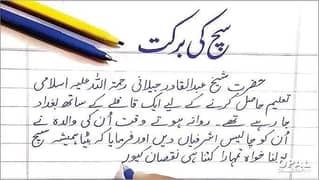 سچ کی برکت
حضرت شیخ عبدالقادر جیلانی رحمۃ اللہ علیہ اسلامی
تعلیم حاصل کرنے کے لیے ایک قافلے کے ساتھ بغداد
جا رہے تھے۔ روانہ ہوتے وقت اُن کی والدہ نے
اُن کو چالیس اشرفیاں دیں اور فرمایا کہ بیٹا ہمیشہ سچ
بولنا خواہ تمہارا کتنا ہی نقصان کیوں